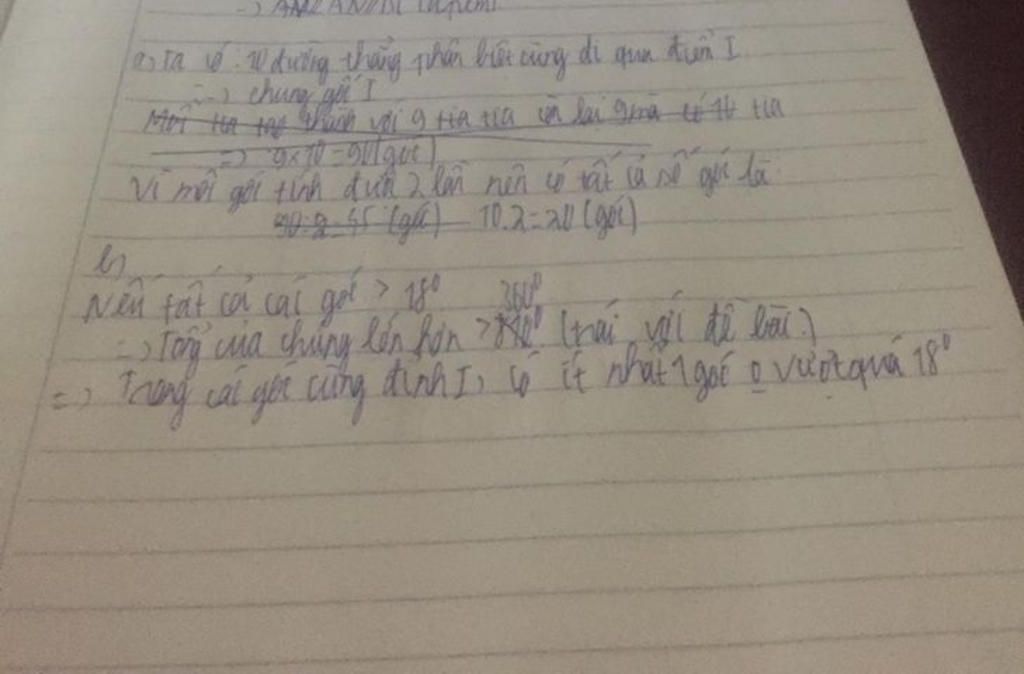 => ΔMC ΔNDB (
a, Ta có: 10 đường thẳng phân biệt cùng đi qua điểm I
=> chung gốc I
Mỗi tia tạo thành với 9 tia còn lại 9 mà có 10 tia
=> 9×10=90(góc)
Vì mỗi góc tính được 2 lần nên có tất cả số góc là:
90:2=45 (góc) 10.2=20 (góc)
b,
Nếu tất cả các góc > 18° 360°
=> Tổng của chúng lớn hơn > (trái với đề bài.)
=> Trong các góc cùng đỉnh I, có ít nhất 1 góc o vượt quá 18°